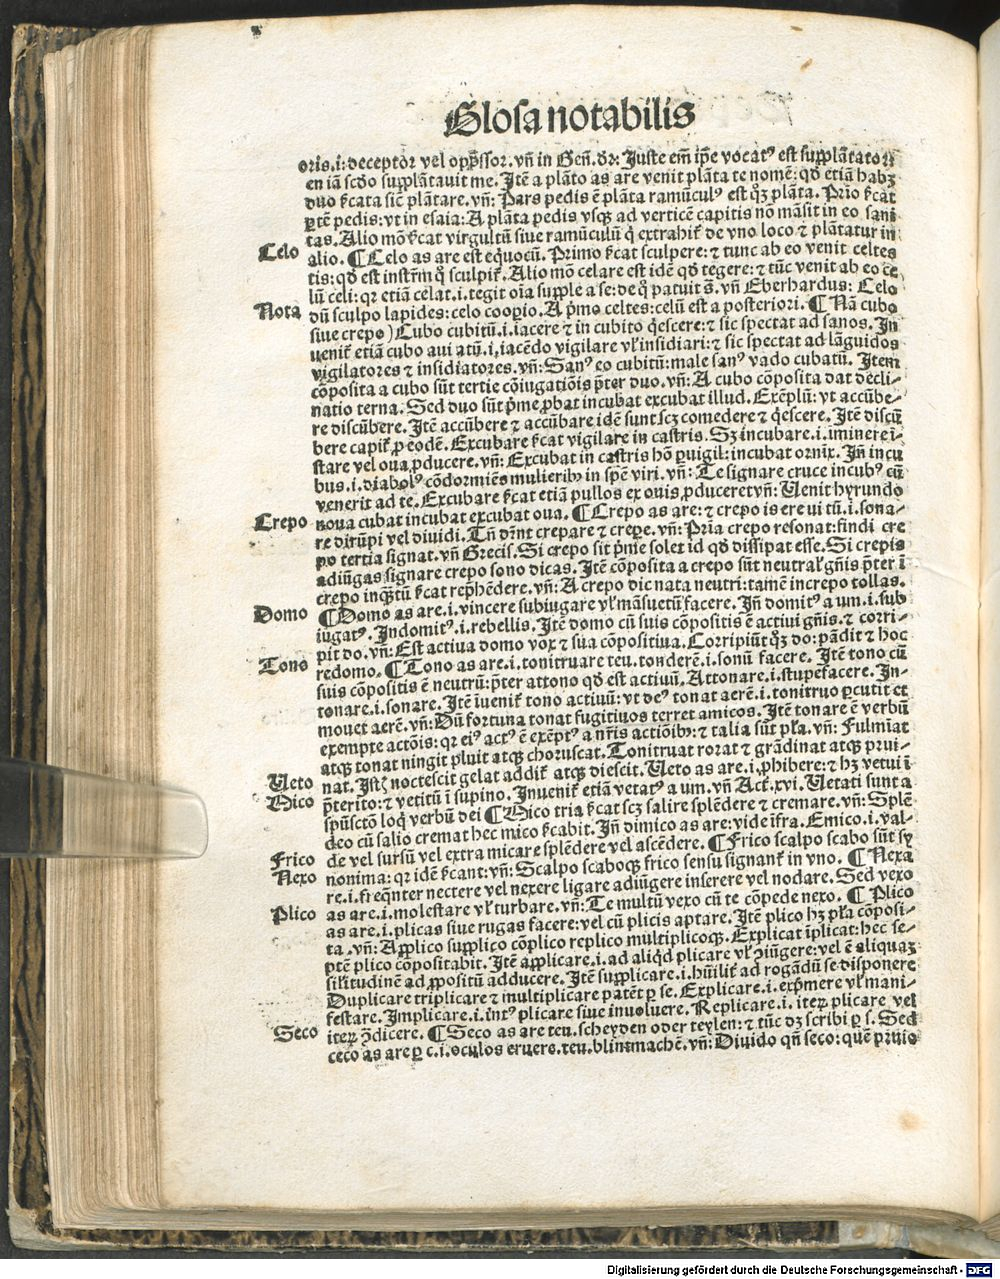 Glosa notabilis
oris.i: deceptor vel oppressor.vñ in Geñ.dr: Juste em̃ ip̃e vocatꝰ est supplãtator:
en iã scđo supplãtavit me. Itẽ a plãto as are venit plãta te nomẽ: qđ etiã habꝫ
duo ẜcata sic̃ plãtare.vñ: Pars pedis ẽ plãta ramũculꝰ est qꝫ plãta. Prio ẜcat
ꝑtẽ pedis: vt in esaia: A plãta pedis vsqꝫ ad verticẽ capitis no mãsit in eo sani
tas. Alio mõ ẜcat virgultũ siue ramũculũ q̃ extrahit̃ de vno loco ⁊ plãtatur in
Celo
alio. ¶ Celo as are est equocũ. Primo ẜcat sculpere: ⁊ tunc ab eo venit celtes
tis: qđ est instr̃m q̃ sculpit̃. Alio mõ celare est idẽ qđ tegere: ⁊ tũc venit ab eo ce
lũ celi: qr etiã celat.i.tegit oĩa supple a se: de q̃ patuit s̃. vñ Eberhardus: Celo
Nota
dũ sculpo lapides: celo coopio. A p̃mo celtes: celũ est a posteriori. ¶ Nã cubo
siue crepo) Cubo cubitũ.i.iacere ⁊ in cubito q̃escere: ⁊ sic spectat ad sanos. In
uenit̃ etiã cubo aui atũ.i.iacẽdo vigilare vl̃ insidiari: ⁊ sic spectat ad lãguidos
vigilatores ⁊ insidiatores. vñ: Sanꝰ eo cubitũ: male sanꝰ vado cubatũ. Item
cõposita a cubo sũt tertie cõiugatiõis p̃ter duo. vñ: A cubo cõposita dat decli-
natio terna. Sed duo sũt p̃me, ꝓbat incubat excubat illud. Exẽplũ: vt accũbe-
re discũbere. Itẽ accũbere ⁊ accũbare idẽ sunt scꝫ comedere ⁊ q̃escere. Itẽ discũ
bere capit̃ ꝓ eodẽ. Excubare ẜcat vigilare in castris. Sꝫ incubare.i.iminere ĩ-
stare vel oua ꝓducere. vñ: Excubat in castris hõ ꝑuigil: incubat ornix. Iñ incu
bus.i.diabolꝰ cõdormiẽs mulieribꝫ in sp̃em viri. vñ: Te signare cruce incubꝰ cũ
venerit ad te. Excubare ẜcat etiã pullos ex ouis ꝓduceret vñ: Uenit hyrundo
Crepo
noua cubat incubat excubat oua. ¶ Crepo as are: ⁊ crepo is ere ui tũ.i.sona-
re dirũpi vel diuidi. Tñ dr̃nt crepare ⁊ crepe. vñ: Pria crepo resonat: findi cre
po tertia signat. vñ Grecis. Si crepo sit p̃me solet id qđ dissipat esse. Si crepis
adiũgas signare crepo sono dicas. Itẽ cõposita a crepo sũt neutral̃ gñis p̃ter ĩ
crepo inqꝫtũ ẜcat rep̃hẽdere. vñ: A crepo dic nata neutri: tamẽ increpo tollas.
Domo
¶ Domo as are.i.vincere subiugare vl̃ mãsuetũ facere. Iñ domitꝰ a um.i.sub
iugatꝰ. Indomitꝰ.i.rebellis. Itẽ domo cũ suis cõpositis ẽ actiui gñis. ⁊ corri-
pit do. vñ: Est actiua domo vox ⁊ sua cõpositiua. Corripiũt qꝫ do: pãdit ⁊ hoc
Tono
redomo. ¶ Tono as are.i.tonitruare teu. tonderẽ.i.sonũ facere. Itẽ tono cũ
suis cõpositis ẽ neutrũ: p̃ter attono qđ est actiuũ. Attonare.i.stupefacere. In-
tonare.i.sonare. Itẽ ĩuenit̃ tono actiuũ: vt deꝰ tonat aerẽ.i.tonitruo ꝑcutit et
mouet aerẽ. vñ: Dũ fortuna tonat fugitiuos terret amicos. Itẽ tonare ẽ verbũ
exempte actõis: qr eiꝰ actꝰ ẽ exẽptꝰ a nr̃is actiõibꝫ: ⁊ talia sũt pl̃a. vñ: Fulmĩat
atqꝫ tonat ningit pluit atqꝫ choruscat. Tonitruat rorat ⁊ grãdinat atqꝫ prui-
Ueto
nat. Istꝫ noctescit gelat addit̃ atqꝫ diescit. Ueto as are.i.ꝓhibere: ⁊ hꝫ vetui ĩ
Mico
p̃terito: ⁊ vetitũ ĩ supino. Inuenit̃ etiã vetatꝰ a um. vñ Act̃.xvi. Uetati sunt a
spũscto loq̃ verbũ dei ¶ Mico tria ẜcat scꝫ salire splẽdere ⁊ cremare. vñ: Splẽ
deo cũ salio cremat hec mico ẜcabit. Iñ dimico as are: vide ĩfra. Emico.i.val-
Frico
de vel sursũ vel extra micare splẽdere vel ascẽdere. ¶ Frico scalpo scabo sũt sy
Nexo
nonima: qr idẽ ẜcant: vñ: Scalpo scaboqꝫ frico sensu signant̃ in vno. ¶ Nexa
re.i.freq̃nter nectere vel nexere ligare adiũgere inserere vel nodare. Sed vexo
Plico
as are.i.molestare vl̃ turbare. vñ: Te multũ vexo cũ te cõpede nexo. ¶ Plico
as are.i.plicas siue rugas facere: vel cũ plicis aptare. Itẽ plico hꝫ pl̃a cõposi-
ta. vñ: Applico supplico cõplico replico multiplicoqꝫ. Explicat ĩplicat: hec se-
ptẽ plico cõpositabit. Itẽ applicare.i.ad aliqđ plicare vl̃ ꝯiũgere: vel ẽ aliquaꝫ
sil̃itudinẽ ad ꝓpositũ adducere. Itẽ supplicare.i.hũilit̃ ad rogãdũ se disponere
Duplicare triplicare ⁊ multiplicare patẽt ꝑ se. Explicare.i.exp̃mere vl̃ mani-
festare. Implicare.i.intꝰ plicare siue inuoluere. Replicare.i. iteꝝ plicare vel
Seco
iteꝝ ꝯdicere. ¶ Seco as are teu. scheyden oder teylen: ⁊ tũc dꝫ scribi ꝑ s. Sed
ceco as are ꝑ c.i.oculos eruere. teu. blintmachẽ. vñ: Diuido qñ seco: quẽ priuo
Digitalisierung gefördert durch die Deutsche Forschungsgemeinschaft - DFG